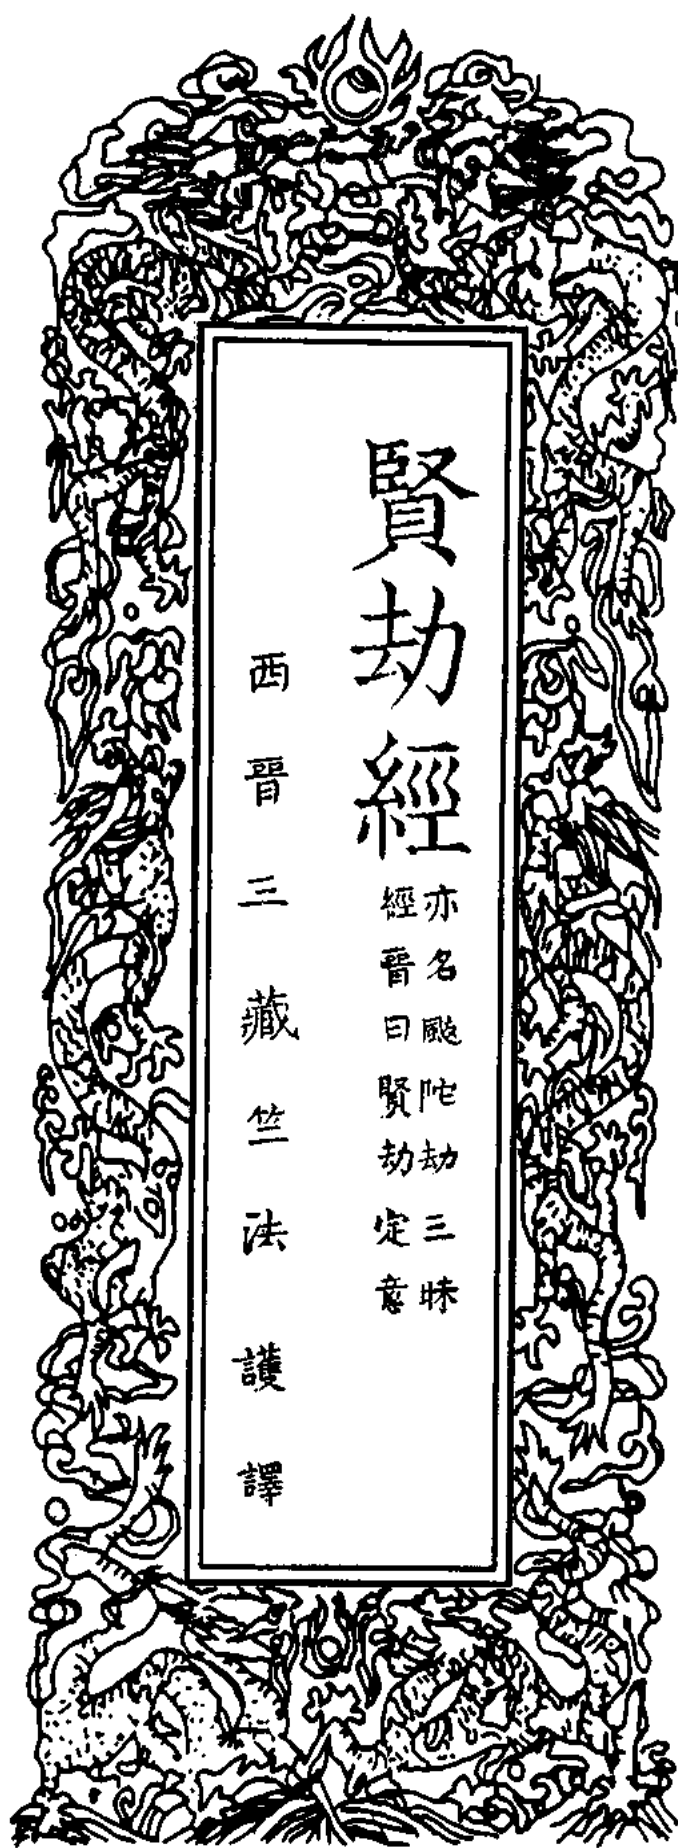 賢劫經
亦名颰陀劫三昧
經晉曰賢劫定意
西晉三藏竺法護譯